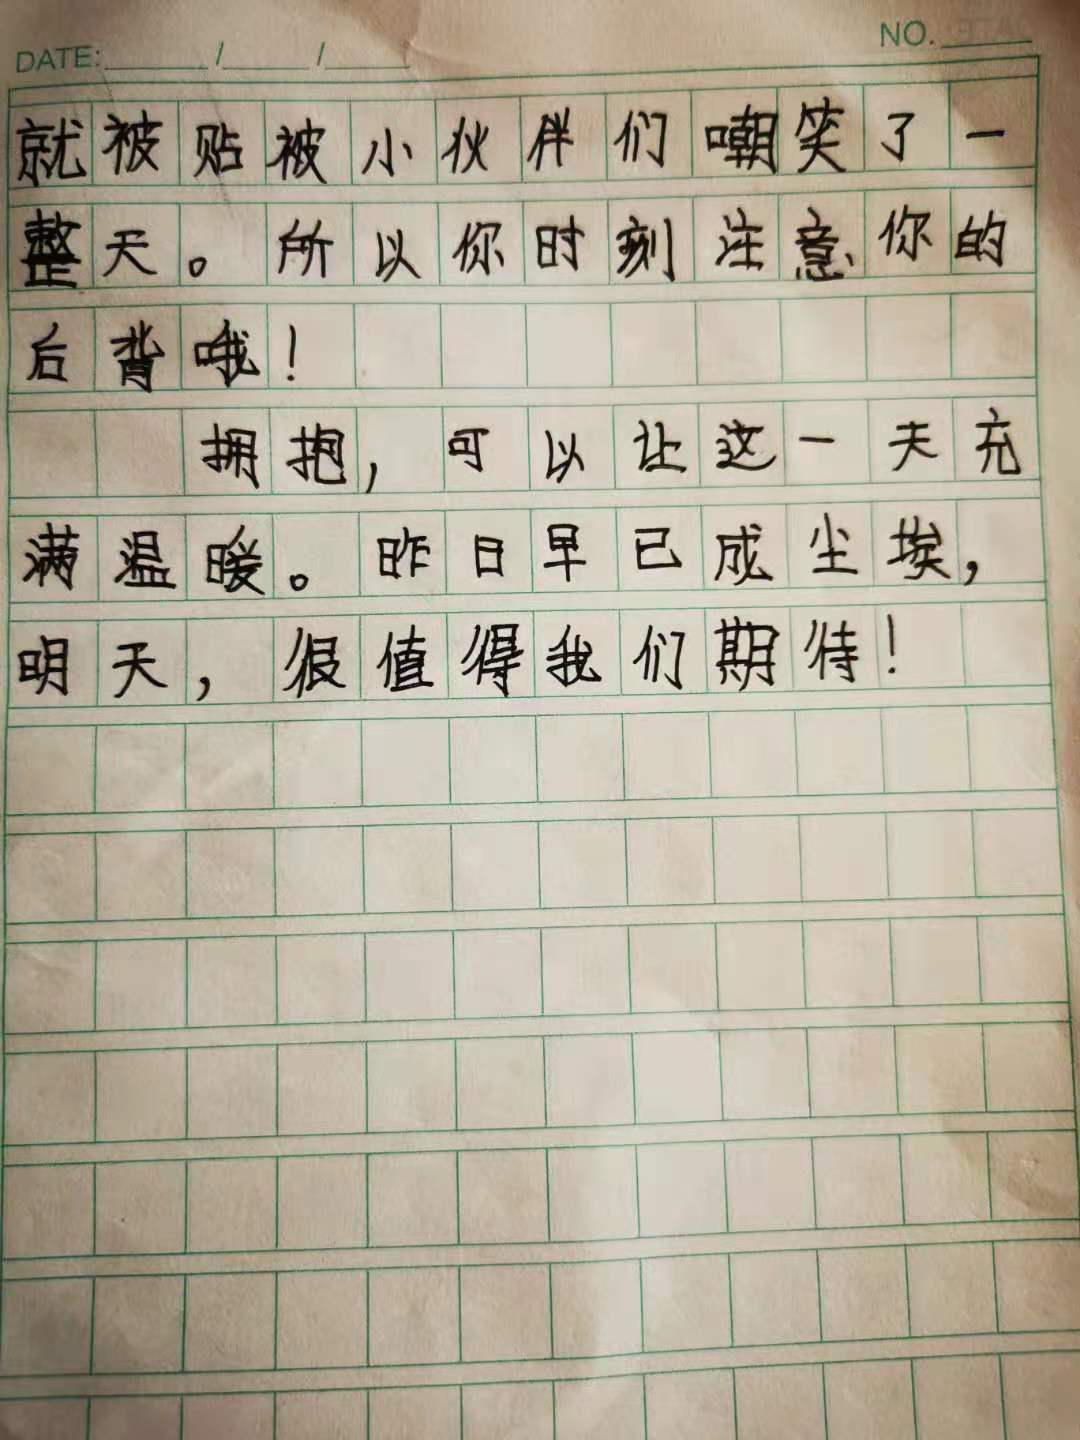 DATE: / / NO.
就被贴被小伙伴们嘲笑了一
整天。所以你时刻注意你的
后背哦！
拥抱，可以让这一天充
满温暖。昨日早已成尘埃，
明天，很值得我们期待！